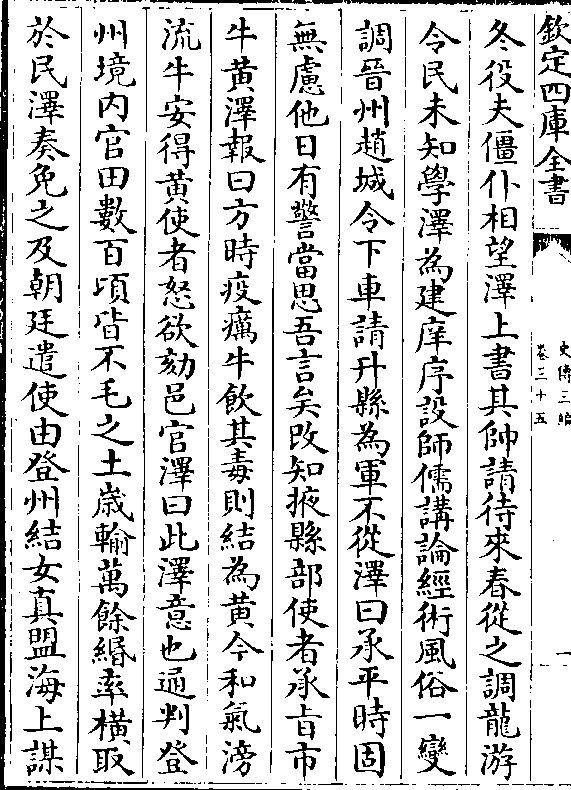 欽定四庫全書
史傳三編
卷三十五
一
冬役夫僵仆相望澤上書其帥請待來春從之調龍游
令民未知學澤為建庠序設師儒講論經術風俗一變
調晉州趙城令下車請升縣為軍不從澤曰承平時固
無慮他日有警當思吾言矣改知掖縣部使者承㫖市
牛黃澤報曰方時疫癘牛飲其毒則結為黃今和氣滂
流牛安得黃使者怒欲劾邑官澤曰此澤意也通判登
州境内官田數百頃皆不毛之土歳輸萬餘緡率横取
於民澤奏免之及朝廷遣使由登州結女真盟海上謀